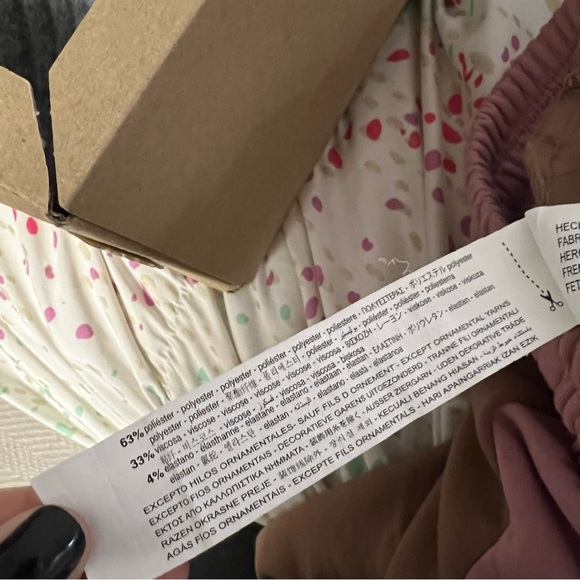 63% poliéster - polyester - polyester - polyester - poliestere - ΠΟΛΥΕΣΤΕΡΑΣ - ポリエステル polyester
polyester - polyester - 聚酯纤维 - 폴리에스터 - poliester - poliéster - poliéster - poliesterra
33% viscosa - viscose - viscose - viscose - viscosa - ΒΙΣΚΟΖΗ - レーヨン - viskose - viskose - viskoza
粘纤 - 비스코스 - viscose - viscosa - viscosa - biskosa
4% elastano - elasthanne - elastane - elastano - elastan - elastan
elastan - 氨纶 - 엘라스탄 - elastan - elastà - elastá - elastanoa
EXCEPTO HILOS ORNAMENTALES - SAUF FILS D ORNEMENT - EXCEPT ORNAMENTAL YARNS
EXCEPTO FIOS ORNAMENTAIS - DECORATIEVE GARENS UITGEZONDERD - TRANNE FILI ORNAMENTALI
ΕΚΤΟΣ ΑΠΟ ΚΑΛΛΩΠΙΣΤΙΚΑ ΝΗΜΑΤΑ - 装飾用糸を除く - AUSSER ZIERGARN - UDEN DEKORATIVE TRADE
RAZEN OKRASNE PREJE - 装饰线除外 - 장식사 제외 - KECUALI BENANG HIASAN
AGÁS FÍOS ORNAMENTAIS - EXCEPTE FILS ORNAMENTALS - HARI APAINGARRIAK IZAN EZIK
HECH
FABR
FRE